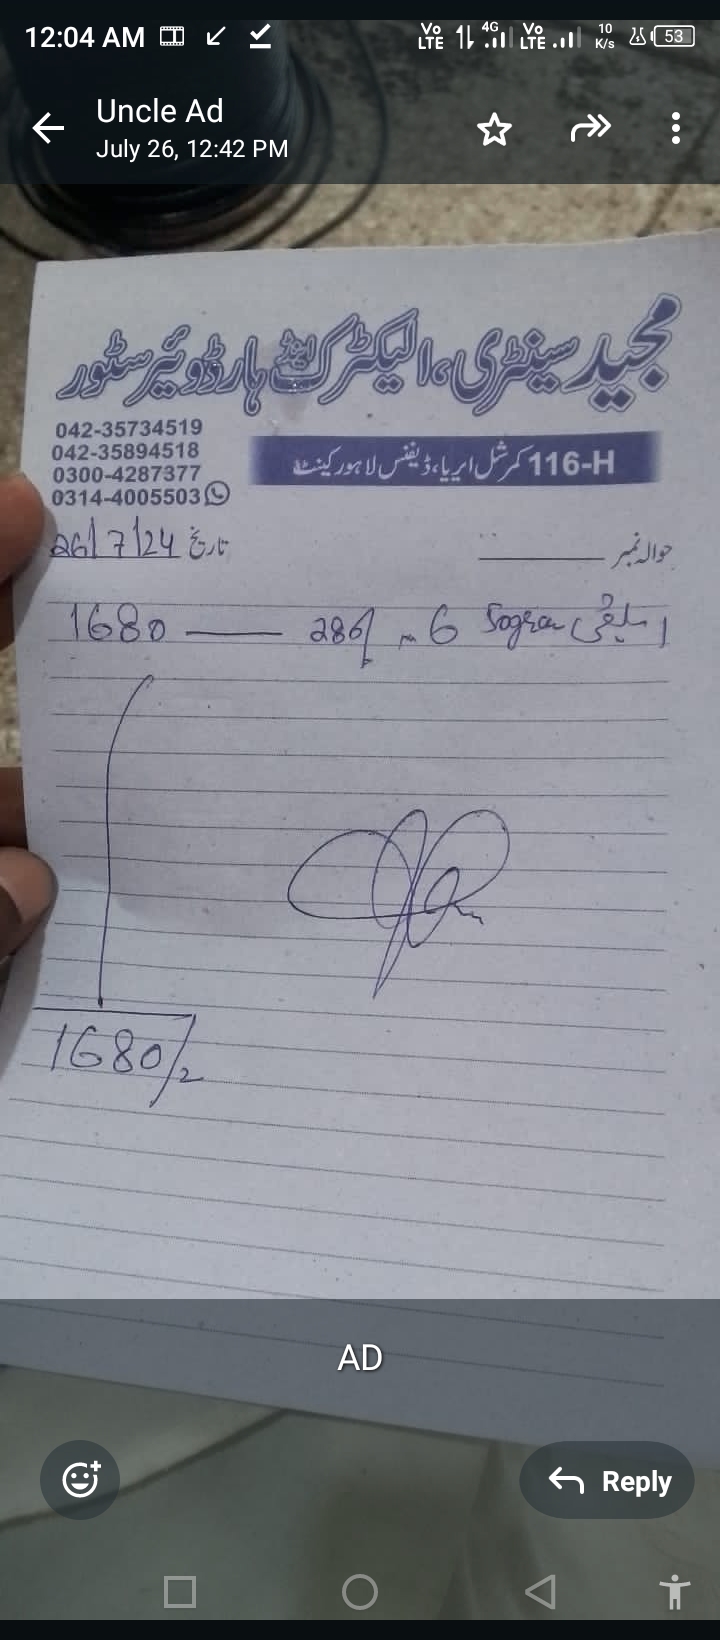 12:04 AM Vo LTE 4G Vo LTE 10 K/s 53
Uncle Ad
July 26, 12:42 PM
مجید سینٹری، الیکٹرک اینڈ ہارڈوئیر سٹور
042-35734519
042-35894518
0300-4287377
0314-4005503
116-H کمرشل ایریا، ڈیفنس لاہور کینٹ
حوالہ نمبر
تاریخ 26/7/24
6 280/ — 1680
1680/=
AD
Reply